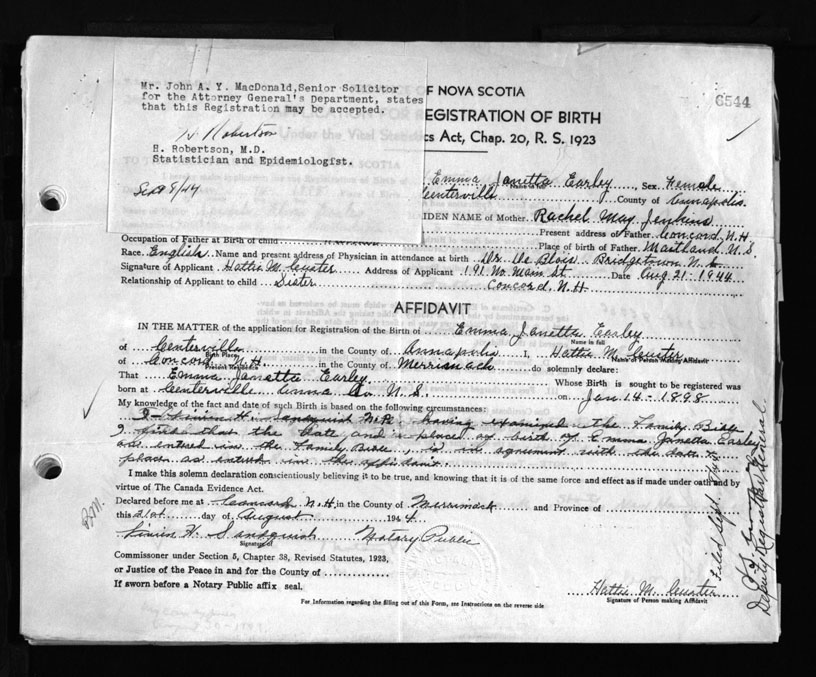 Mr. John A. Y. MacDonald, Senior Solicitor
for the Attorney General's Department, states
that this Registration may be accepted.
H Robertson
H. Robertson, M.D.
Statistician and Epidemiologist.
Sept 8/44
OF NOVA SCOTIA
6544
REGISTRATION OF BIRTH
Under the Vital Statistics Act, Chap. 20, R. S. 1923
Emma Janetta Earley Sex Female
Name in full
Centerville County of Annapolis
MAIDEN NAME of Mother Rachel May Jenkins
Present address of Father Concord, N.H.
Occupation of Father at Birth of child Place of birth of Father Maitland N.S.
Race English Name and present address of Physician in attendance at birth Dr. De Blois Bridgetown N.S.
Signature of Applicant Hattie M. Custer Address of Applicant 191 No. Main St. Date Aug 21-1944
Relationship of Applicant to child Sister Concord N.H
AFFIDAVIT
IN THE MATTER of the application for Registration of the Birth of Emma Janetta Earley
Name in full
of Centerville in the County of Annapolis I, Hattie M. Custer
Birth Place Name of Person Making Affidavit
of Concord N.H. in the County of Merrimack do solemnly declare:
Present Residence
That Emma Janetta Earley Whose Birth is sought to be registered was
born at Centerville Anna Co N.S. on Jan 14-1898.
My knowledge of the fact and date of such Birth is based on the following circumstances:
H. Sandquist N.P. having examined the Family Bible
I find that the date and place of birth of Emma Janetta Earley
as entered in the Family Bible, is in agreement with the date &
place as entered in the affidavit.
I make this solemn declaration conscientiously believing it to be true, and knowing that it is of the same force and effect as if made under oath and by
virtue of The Canada Evidence Act.
Declared before me at Concord N.H. in the County of Merrimack and Province of
this 21st day of August 1944
H. Sandquist Notary Public
Signature of
Commissioner under Section 5, Chapter 38, Revised Statutes, 1923,
or Justice of the Peace in and for the County of
If sworn before a Notary Public affix seal.
Hattie M. Custer
Signature of Person making Affidavit
For Information regarding the filling out of this Form, see Instructions on the reverse side
Filed Sept.
Deputy Registrar General